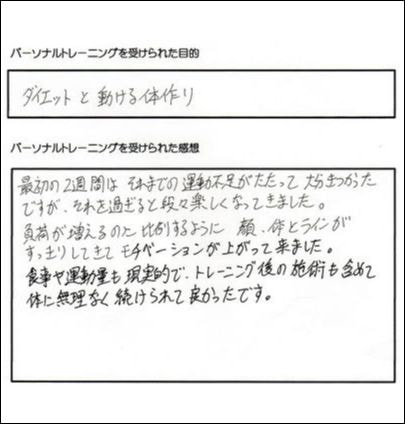 パーソナルトレーニングを受けられた目的
ダイエットと動ける体作り
パーソナルトレーニングを受けられた感想
最初の2週間は それまでの運動不足がたたって 大分きつかった
ですが、それを過ぎると段々楽しくなってきました。
負荷が増えるのに比例するように 顔、体とラインが
すっきりしてきて モチベーションが上がって来ました。
食事や運動量も現実的で、トレーニング後の施術も含めて
体に無理なく続けられて良かったです。